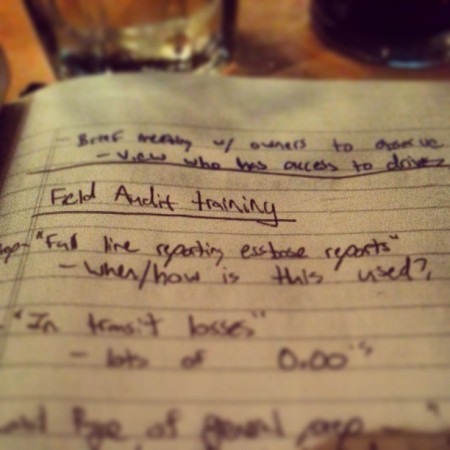 - Brief meeting w/ owners to observe
- view who has access to drives
Field Audit training
"Full line reporting essbase reports"
- when/how is this used?
- "In transit losses"
- lots of 0.00's
Page of general